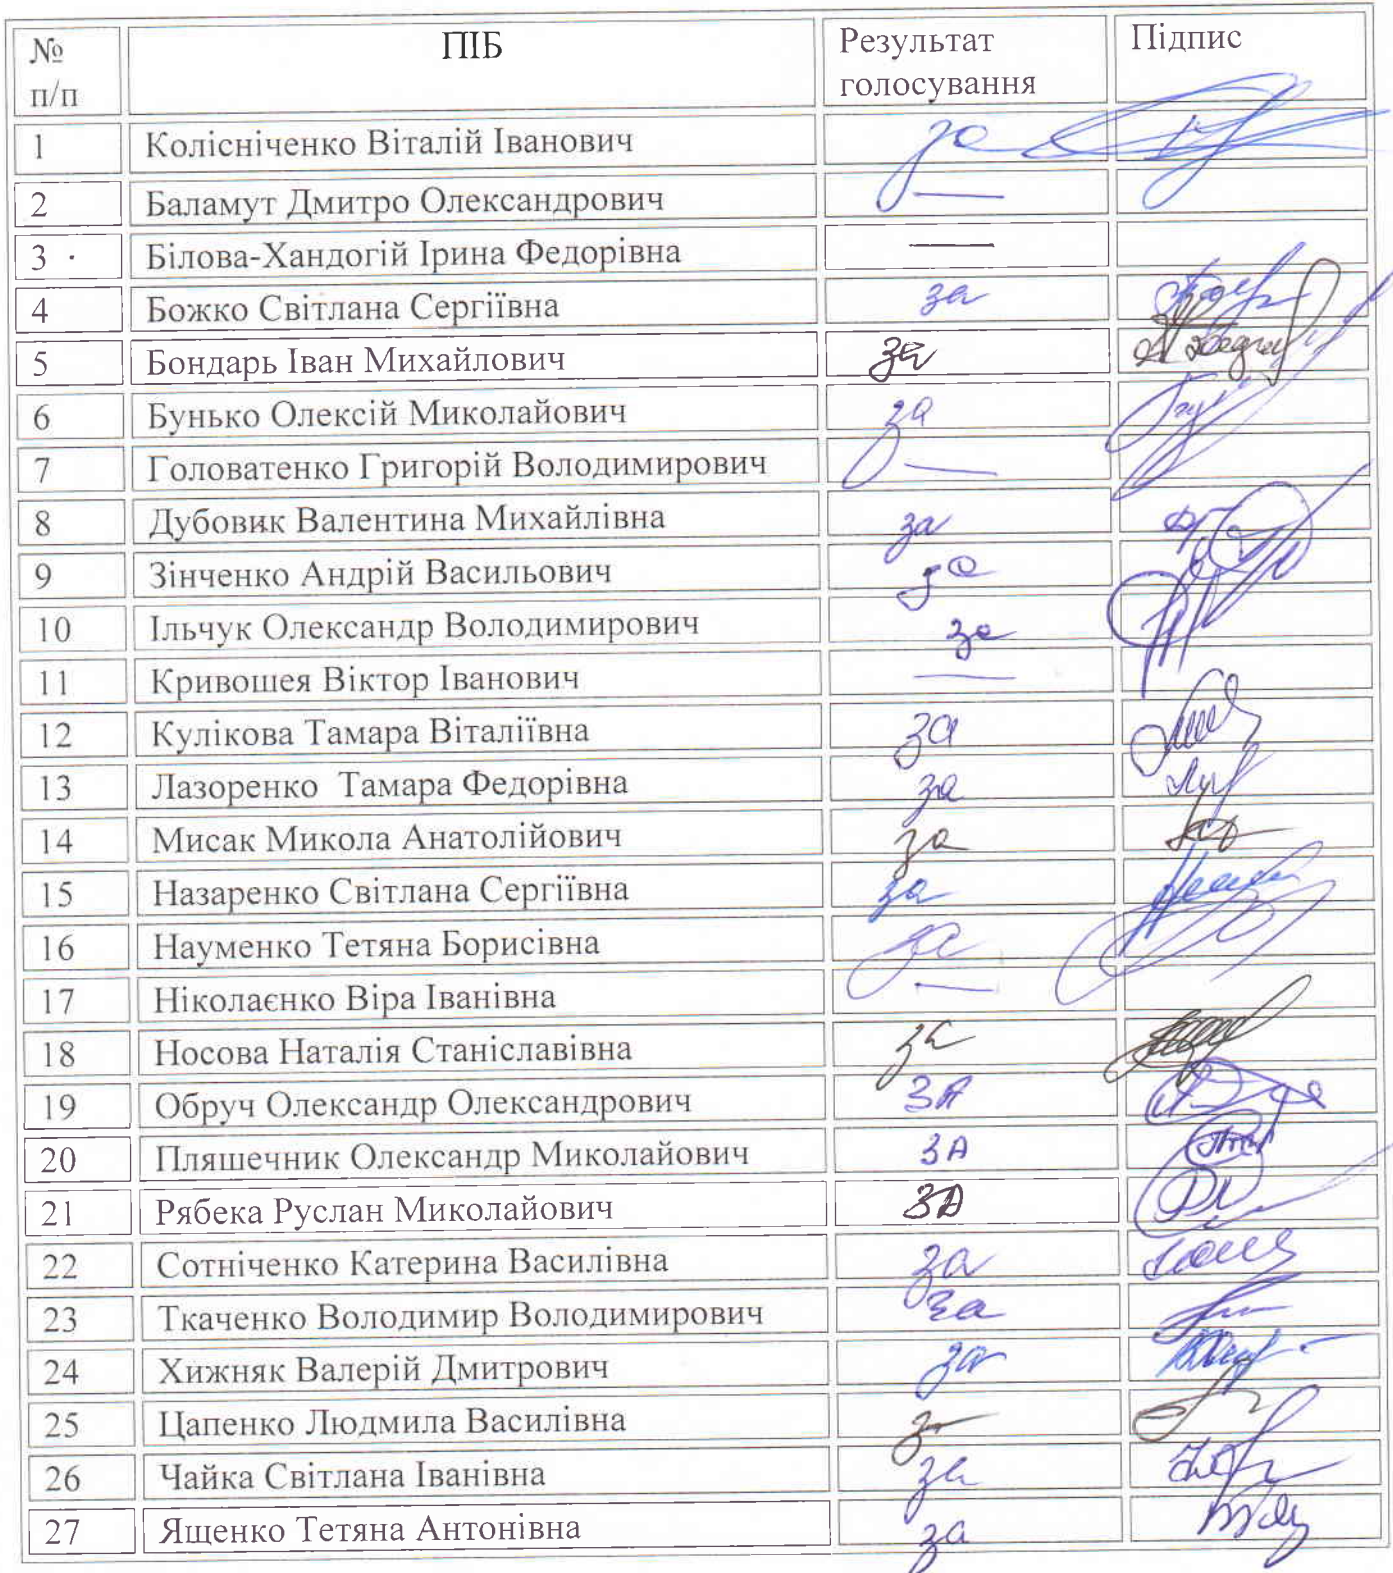 № п/п ПІБ Результат голосування Підпис
1 Колісніченко Віталій Іванович за
2 Баламут Дмитро Олександрович —
3 · Білова-Хандогій Ірина Федорівна —
4 Божко Світлана Сергіївна за
5 Бондарь Іван Михайлович за
6 Бунько Олексій Миколайович за
7 Головатенко Григорій Володимирович —
8 Дубовик Валентина Михайлівна за
9 Зінченко Андрій Васильович за
10 Ільчук Олександр Володимирович за
11 Кривошея Віктор Іванович —
12 Кулікова Тамара Віталіївна за
13 Лазоренко Тамара Федорівна за
14 Мисак Микола Анатолійович за
15 Назаренко Світлана Сергіївна за
16 Науменко Тетяна Борисівна за
17 Ніколаєнко Віра Іванівна —
18 Носова Наталія Станіславівна за
19 Обруч Олександр Олександрович ЗА
20 Пляшечник Олександр Миколайович ЗА
21 Рябека Руслан Миколайович ЗА
22 Сотніченко Катерина Василівна за
23 Ткаченко Володимир Володимирович за
24 Хижняк Валерій Дмитрович за
25 Цапенко Людмила Василівна за
26 Чайка Світлана Іванівна за
27 Ященко Тетяна Антонівна за